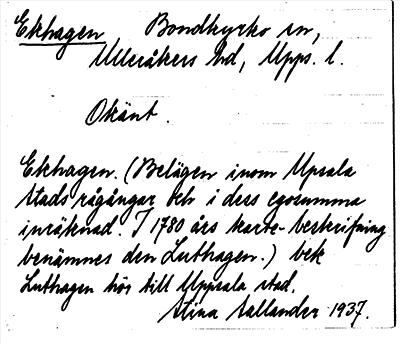 Ekhagen Bondkyrko sn,
Ulleråkers hd, Upps. l.
Okänt.
Ekhagen. (Belägen inom Upsala
stads rågångar och i dess egorumma
inräknad. I 1780 års karte-beskrifning
benämnes den Luthagen.) bek
Luthagen hör till Uppsala stad.
Stina Sallander 1937.